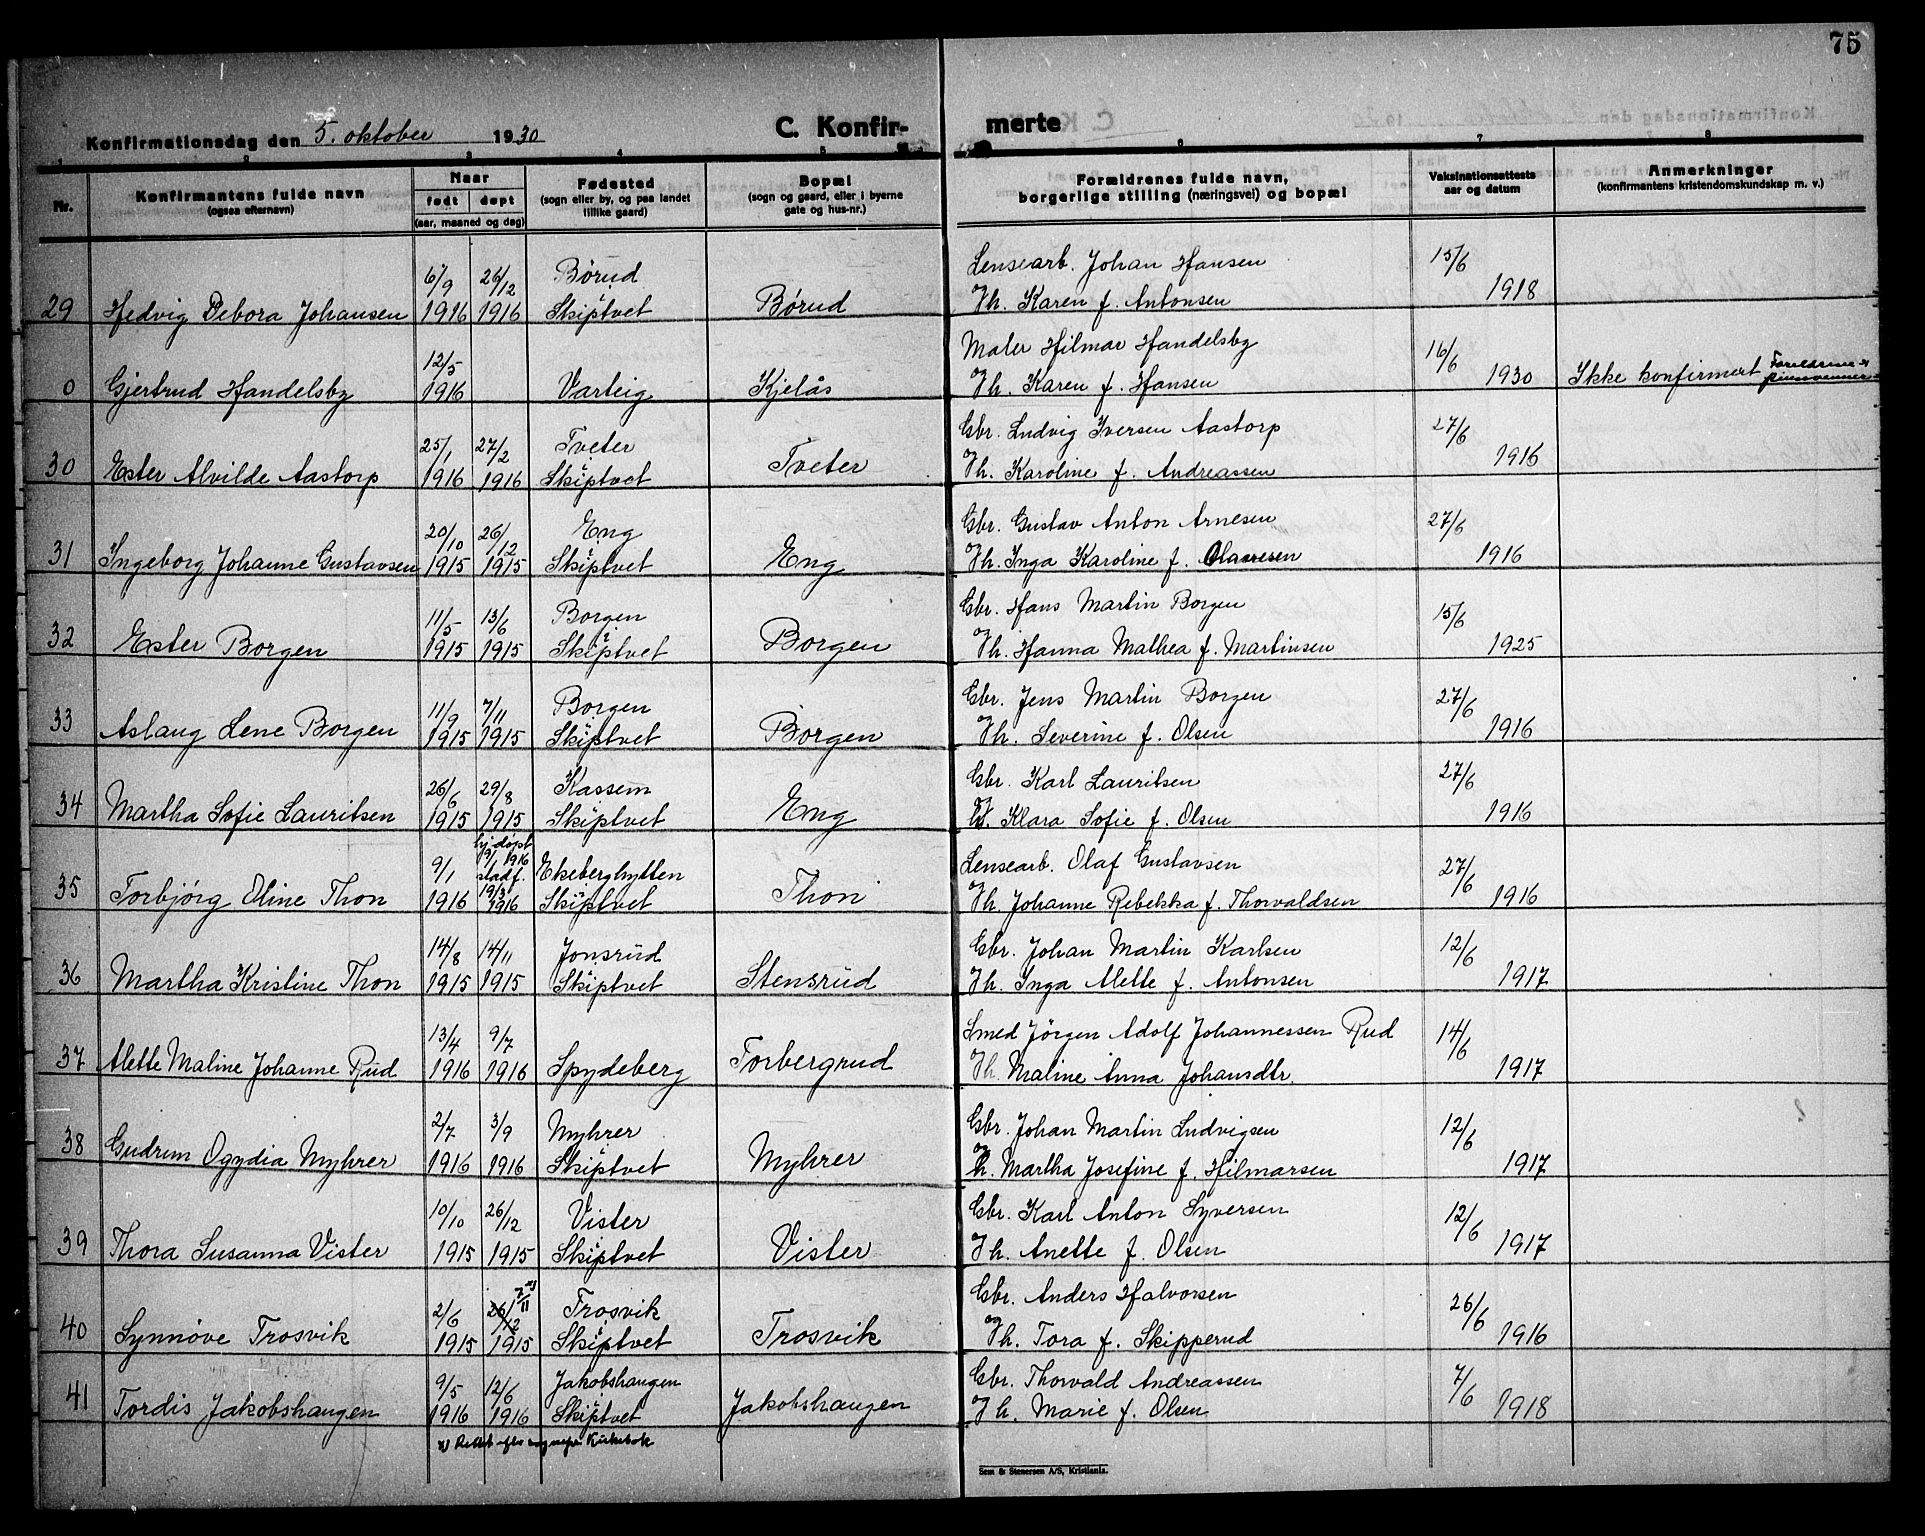 75
Konfirmationsdag den 5. oktober 1930
C. Konfir-
merte
1 2 3 4 5 6 7 8
Nr.
Konfirmantens fulde navn
(ogsaa efternavn)
Naar
født døpt
(aar, maaned og dag)
Fødested
(sogn eller by, og paa landet
tillike gaard)
Bopæl
(sogn og gaard, eller i byerne
gate og hus-nr.)
Forældrenes fulde navn,
borgerlige stilling (næringsvei) og bopæl
Vaksinationsattests
aar og datum
Anmerkninger
(konfirmantens kristendomskundskap m. v.)
6/9 26/2 Børud Lensearb. Johan Hansen 15/6
29 Hedvig Debora Johansen 1916 1916 Skiptvet Børud og H. Karen f. Antonsen 1918
12/5 Maler Hilmar Handelsby 16/6
0 Gjertrud Handelsby 1916 Varteig Kjelås og H. Karen f. Hansen 1930 Ikke konfirmert Foreldrene pinsevenner
25/1 27/2 Tveter Gbr. Ludvig Iversen Aastorp 27/6
30 Ester Alvilde Aastorp 1916 1916 Skiptvet Tveter og H. Karoline f. Andreassen 1916
20/10 26/12 Eng Gbr. Gustav Anton Arnesen 27/6
31 Ingeborg Johanne Gustavsen 1915 1915 Skiptvet Eng og H. Inga Karoline f. 1916
11/5 13/6 Borgen Gbr. Hans Martin Borgen 15/6
32 Ester Borgen 1915 1915 Skiptvet Borgen og H. Hanna Mathea f. Martinsen 1925
11/9 7/11 Borgen Gbr. Jens Martin Borgen 27/6
33 Aslaug Lene Borgen 1915 1915 Skiptvet Borgen og H. Severine f. Olsen 1916
26/6 29/8 Kassem Gbr. Karl Lauritsen 27/6
34 Martha Sofie Lauritsen 1915 1915 Skiptvet Eng og H. Klara Sofie f. Olsen 1916
9/1 hj.døpt 9/1 1916 stadf. Ekeberghytten Lensearb. Olaf Gustavsen 27/6
35 Torbjørg Oline Thon 1916 19/3 1916 Skiptvet Thon og H. Johanne Rebekka f. Thorvaldsen 1916
14/8 14/11 Jonsrud Gbr. Johan Martin Karlsen 12/6
36 Martha Kristine Thon 1915 1915 Skiptvet Stensrud H. Inga Alette f. Antonsen 1917
13/4 9/7 Smed Jörgen Adolf Johannessen Rud 14/6
37 Alette Maline Johanne Rud 1916 1916 Spydeberg Torbergrud H. Maline Anna Johansdtr. 1917
2/7 3/9 Myhrer Gbr. Johan Martin Ludvigsen 12/6
38 Gudrun Ogydia Myhrer 1916 1916 Skiptvet Myhrer og H. Martha Josefine f. Hilmarsen 1917
10/10 26/12 Vister Gbr. Karl Anton Syversen 12/6
39 Thora Susanna Vister 1915 1915 Skiptvet Vister H. Anette f. Olsen 1917
2/6 26/12 7/11 x) Trosvik Gbr. Anders Halvorsen 26/6
40 Synnøve Trosvik 1915 1915 Skiptvet Trosvik og H. Tora f. Skipperud 1916
9/5 12/6 Jakobshaugen Gbr. Thorvald Andreassen 7/6
41 Tordis Jakobshaugen 1916 1916 Skiptvet Jakobshaugen og H. Marie f. Olsen 1918
x) Rettet efter sognepr. Kirkebok
Sem & Stenersen A/S, Kristiania.